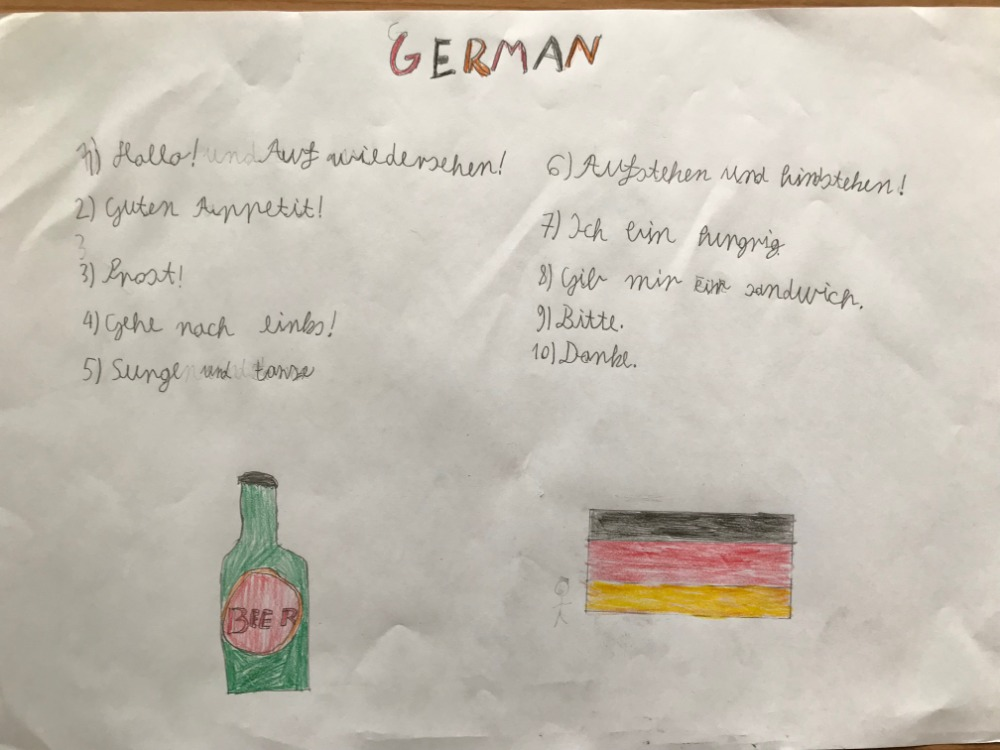 GERMAN
1) Hallo! und Auf wiedersehen!
2) Guten Appetit!
3
3) Prost!
4) Gehe nach links!
5) Singe und tanze
6) Aufstehen und hinstehen!
7) Ich bin hungrig
8) Gib mir ein sandwich.
9) Bitte.
10) Danke.
BEER